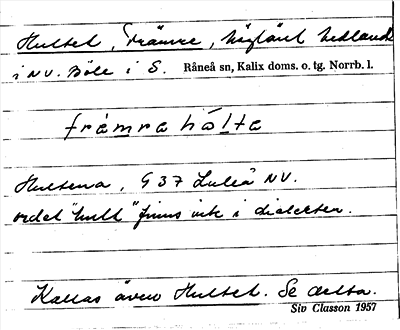 Hultet, Främre, höglänt hedland
i NV. Böle i S. Råneå sn, Kalix doms. o. tg. Norrb. l.
främra hólta
Hultena, G 37 Luleå NV.
ordet "hult" finns inte i dialekten.
Kallas även Hultet. Se detta.
Siv Classon 1957